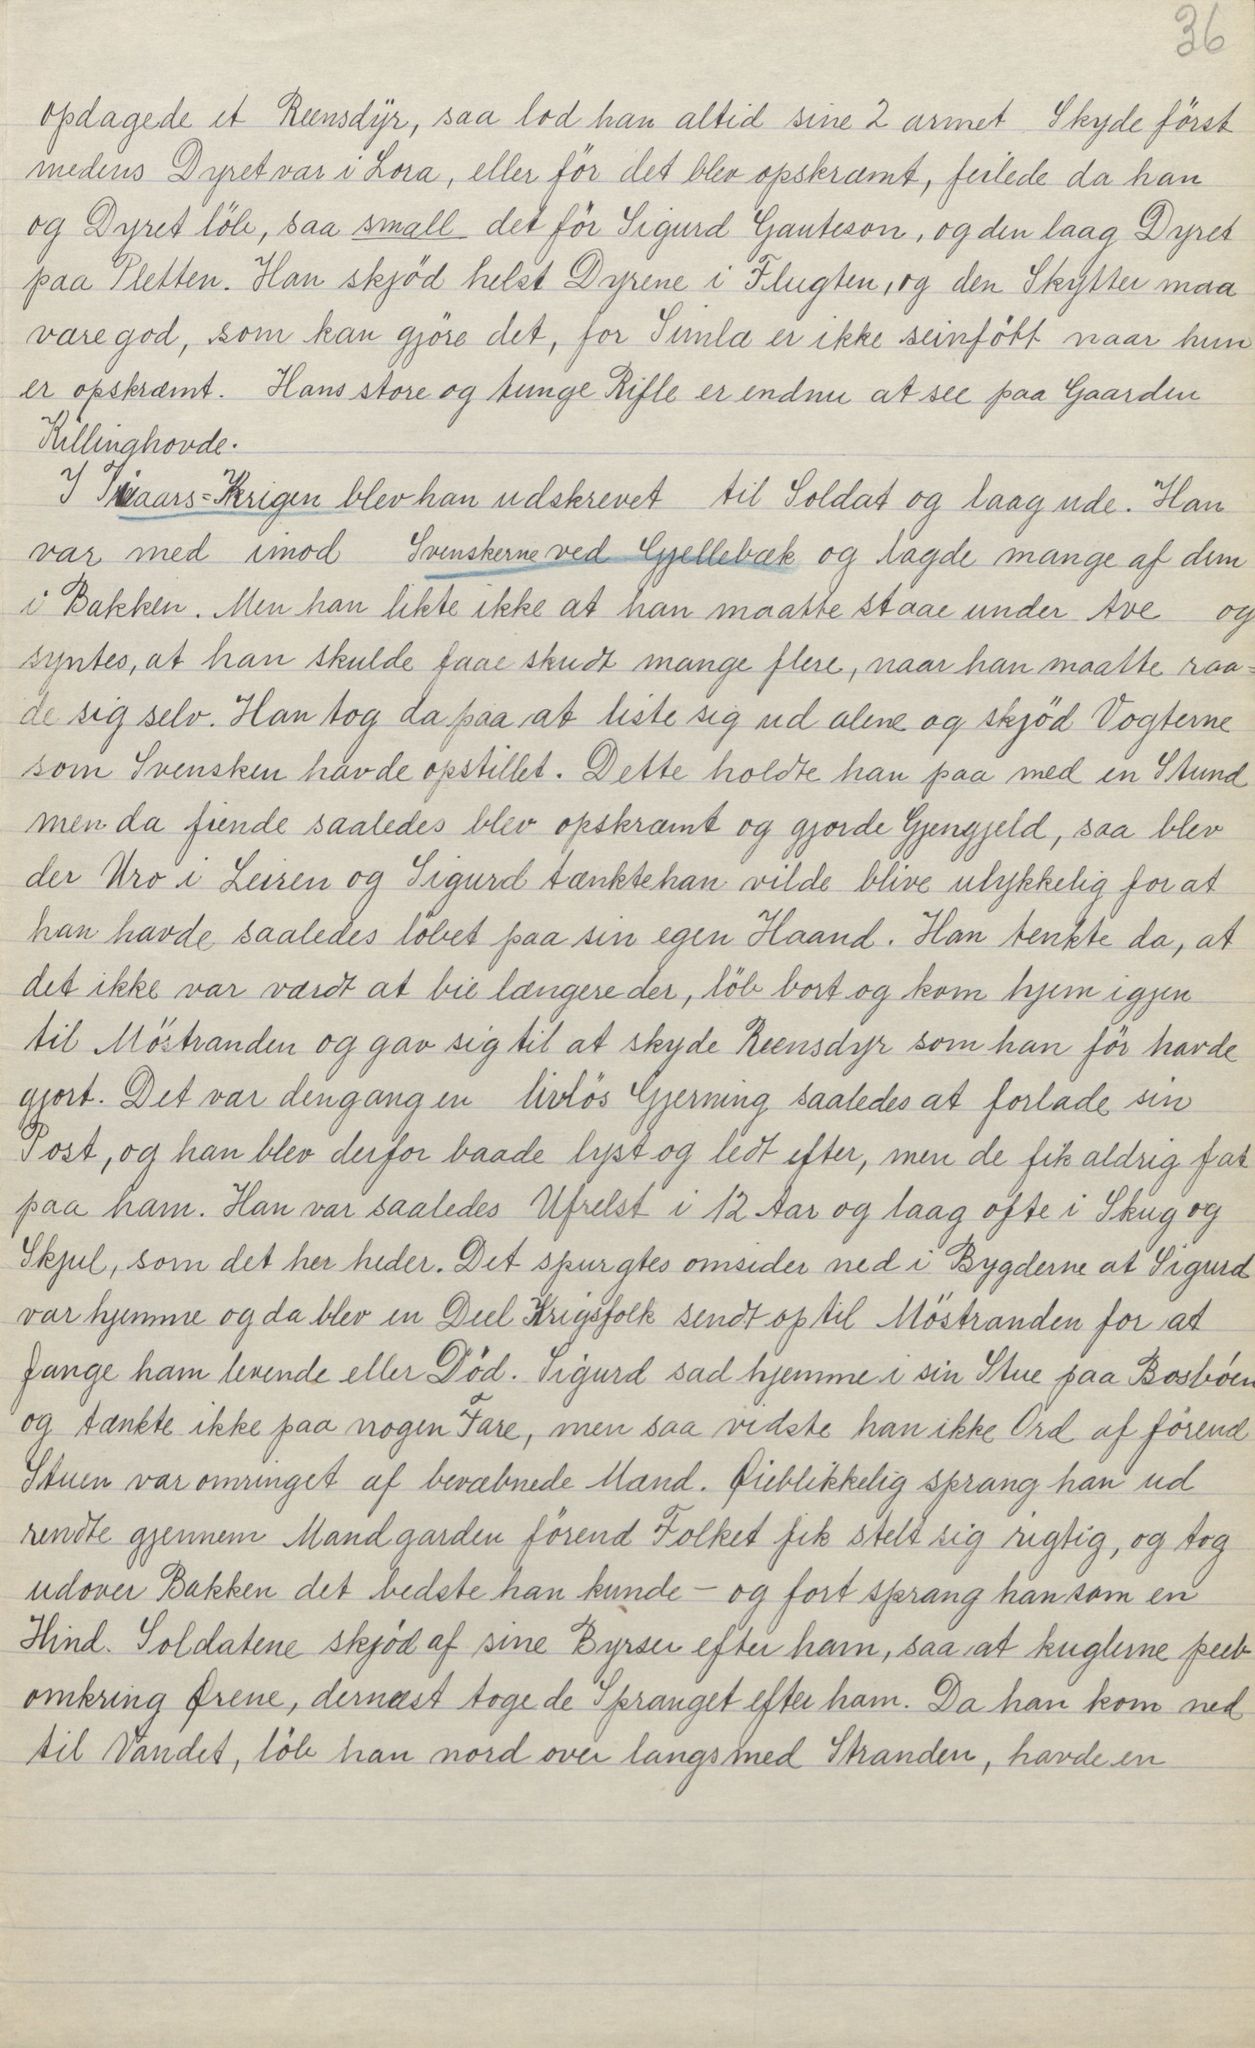 36
opdagede et Reensdÿr, saa lod han altid sine 2 armet Skyde först
medens Dyret var i Lora, eller för det blev opskræmt, feilede da han
og Dyret löb, saa small det för Sigurd Gauteson, og den laag Dyret
paa Pletten. Han skjöd helst Dyrene i Flugten, og den Skytter maa
være god, som kan gjöre det, for Simla er ikke seinfött naar hun
er opskræmt. Hans store og tunge Rifle er endnu at see paa Gaarden
Killinghovde.
I Tiaars=Krigen blev han udskrevet til Soldat og laag ude. Han
var med imod Svenskerne ved Gjellebæk og lagde mange af dem
i Bakken. Men han likte ikke at han maatte staae under Ave og
syntes, at han skulde faae skudt mange flere, naar han maatte raa=
de sig selv. Han tog da paa at liste sig ud alene og skjöd Vogterne
som Svensken havde opstillet. Dette holdte han paa med en Stund
men da fiende saaledes blev opskræmt og gjorde Gjengjeld, saa blev
der Uro i Leiren og Sigurd tænkte han vilde blive ulykkelig for at
han havde saaledes löbet paa sin egen Haand. Han tenkte da, at
det ikke var værdt at bie længere der, löb bort og kom hjem igjen
til Möstranden og gav sig til at skyde Reensdyr som han för havde
gjort. Det var dengang en livlös Gjerning saaledes at forlade sin
Post, og han blev derfor baade lyst og ledt efter, men de fik aldrig fat
paa ham. Han var saaledes Ufrelst i 12 Aar og laag ofte i Skug og
Skjul, som det her heder. Det spurgtes omsider ned i Bygderne at Sigurd
var hjemme og da blev en Deel Krigsfolk sendt op til Möstranden for at
fange ham levende eller Död. Sigurd sad hjemme i sin Stue paa Bosböen
og tænkte ikke paa nogen Fare, men saa vidste han ikke Ord af förend
Stuen var omringet af bevæbnede Mænd. Øieblikkelig sprang han ud
rendte gjennem Mandgarden förend Folket fik stelt sig rigtig, og tog
udover Bakken det bedste han kunde – og fort sprang han som en
Hind. Soldatene skjöd af sine Byrser efter ham, saa at kuglerne peeb
omkring Ørene, dernæst toge de Spranget efter ham. Da han kom ned
til Vandet, löb han nord over langsmed Stranden, havde en